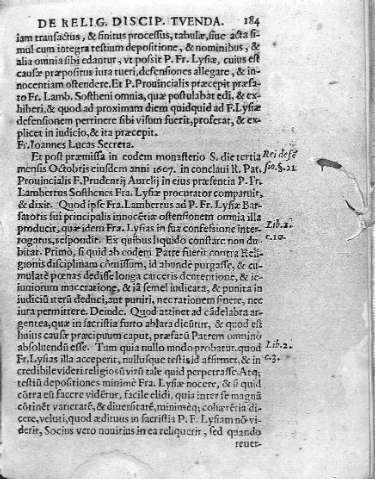 DE RELIG. DISCIP. TVENDA. 184
iam transactus, & finitus processus, tabulæ, siue acta si-
mul cum integra testium depositione, & nominibus, &
alia omnia sibi edantur, vt possit P. Fr. Lysiæ, cuius est
causæ præpositus iura tueri, defensiones allegare, & in-
nocentiam ostendere. Et P. Prouincialis præcepit præfa-
to Fr. Lamb. Sostheni omnia, quæ postulabat edi, & ex-
hiberi, & quod ad proximam diem quidquid ad F. Lysiæ
defensionem pertinere sibi visum fuerit, proferat, & ex-
plicet in iudicio, & ita præcepit.
Fr. Ioannes Lucas Secreta.
Et post præmissa in eodem monasterio S. die tertia
mensis Octobris eiusdem anni 1607. in conclaui R. Pat.
Prouincialis F. Prudentij Aurelij in eius præsentia P. Fr.
Lambertus Sosthenes Fra. Lysiæ procurator comparuit,
& dixit. Quod ipse Fra. Lambertus ad P. Fr. Lysiæ Bar-
satoris sui principalis innocētiæ ostensionem omnia illa
producit, quæ idem Fra. Lysias in sua confessione inter-
rogatus, respondit. Ex quibus liquido constare non du-
bitat. Primò, si quid ab eodem Patre fuerit contra Reli-
gionis disciplinam cōmissum, id abunde purgasse, & cu-
mulatè pœnas dedisse longa carceris detentione, & ie-
iuniorum maceratione, & iā semel iudicata, & punita in
iudiciū iterū deduci, aut puniri, nec rationem sinere, nec
iura permittere. Deinde. Quod attinet ad cādelabra ar-
gentea, quæ in sacristia furto ablata dicūtur, & quod est
huius causæ præcipuum caput, præfatū Patrem omnino
absoluendū esse. Tum quia nullo modo probatur, quod
Fr. Lysias illa acceperit, nullusque testis id affirmet, & in-
credibile videri religiosū virū tale quid perpetrasse. Atq;
testiū depositiones minimè Fra. Lysiæ nocere, & si quid
cōtra eū facere viderur, facile elidi, quia inter se magnā
cōtinēt varietatē, & diuersitatē, minimèq; cohærētia di-
cere, veluti, quod auditus in sacristia P. F. Lysiam nō vi-
derit, Socius vero nouitius in ea reliquerit, sed quando
reuer-
Rei defē
sio. §. 21.
Lib. 2.
c. 10.
Lib. 2.
c. 3.